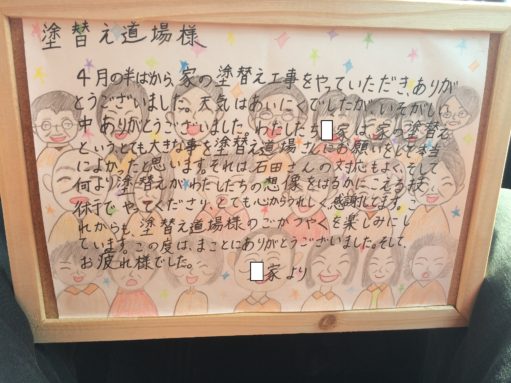 塗替え道場様
4月の半ばから、家の塗替え工事をやっていただき、ありが
とうございました。天気はあいにくでしたが、いそがしい
中ありがとうございました。わたしたち 家は、家の塗替え
というとても大きな事を塗替え道場さんにお願いをして本当
によかったと思います。それは、石田さんの対応もよく、そして
何より塗替えがわたしたちの想像をはるかにこえる
でやってくださり、とても心からうれしく、感謝してます。こ
れからも、塗替え道場様のごかつやくを楽しみにし
ています。この度は、まことにありがとうございました。そして、
お疲れ様でした。
家より